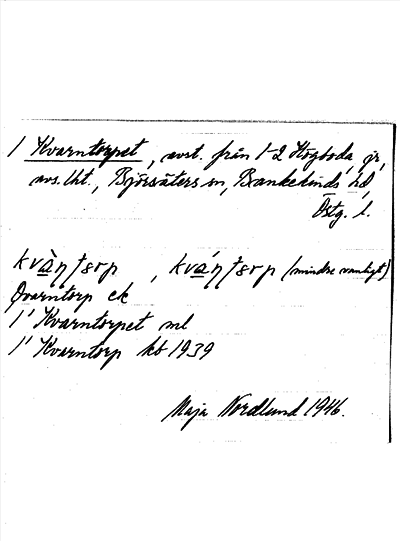 1 Kvarntorpet, avst. från 1-2 Högboda, gr,
avs. lht., Björsäters sn, Bankekinds hd,
Östg. l.
kvàṇtɔrp, kváṇtɔrp (mindre vanligt)
Qvarntorp ek
1' Kvarntorpet ml
1' Kvarntorp kb 1939
Maja Nordlund 1946.